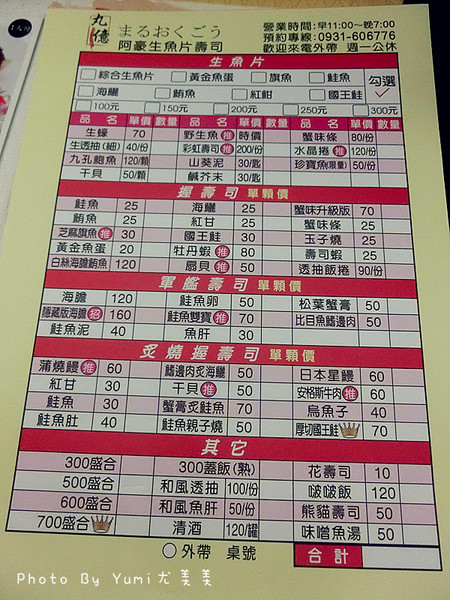 九億
まるおくごう
阿豪生魚片壽司
營業時間:早11:00～晚7:00
預約專線:0931-606776
歡迎來電外帶 週一公休
生魚片
綜合生魚片 黃金魚蛋 旗魚 鮭魚 勾選
海鱺 鮪魚 紅魽 國王鮭
100元 150元 200元 250元 300元
品名 單價 數量 品名 單價 數量 品名 單價 數量
生蠔 70 野生魚 推 時價 蟹味條 80/份
生透抽(細) 40/份 彩虹壽司 推 200/份 水晶捲 推 120/份
九孔鮑魚 120/顆 山葵泥 30/匙 珍寶魚(限量) 50/份
干貝 50/顆 鹹芥末 30/匙
握壽司 單顆價
鮭魚 25 海鱺 25 蟹味升級版 70
鮪魚 25 紅魽 25 蟹味條 25
芝麻旗魚 推 30 國王鮭 30 玉子燒 25
黃金魚蛋 20 牡丹蝦 推 80 壽司蝦 25
白絲海膽鮪魚 120 扇貝 推 50 透抽飯捲 90/份
軍艦壽司 單顆價
海膽 120 鮭魚卵 50 松葉蟹膏 50
隱藏版海膽 招 160 鮭魚雙寶 推 70 比目魚鰭邊肉 50
鮭魚泥 40 魚肝 30
炙燒握壽司 單顆價
蒲燒鰻 推 60 鰭邊肉炙海鱺 50 日本星鰻 60
紅甘 30 干貝 推 50 安格斯牛肉 推 60
鮭魚 30 蟹膏炙鮭魚 70 烏魚子 40
鮭魚肚 40 鮭魚親子燒 50 厚切國王鮭 70
其它
300盛合 300蓋飯(熟) 花壽司 10
500盛合 和風透抽 100/份 啵啵飯 120
600盛合 和風魚肝 50/份 熊貓壽司 50
700盛合 清酒 120/罐 味噌魚湯 50
外帶 桌號 合計
Photo By Yumi尤美美